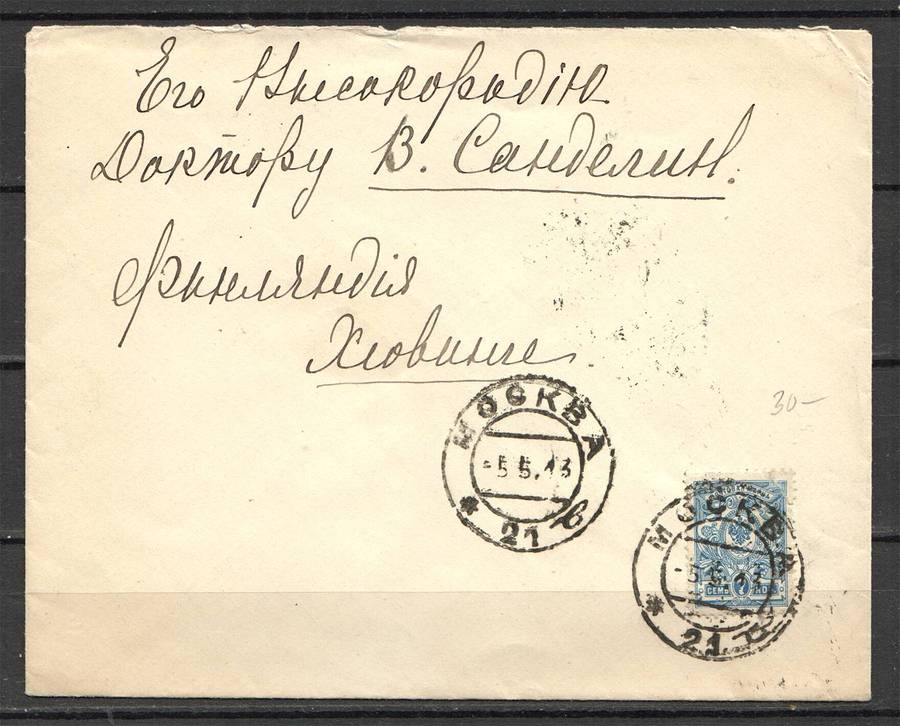 Его Высокородію
Доктору В. Санделин.
Финляндія
Хювинге
30-
МОСКВА
-5.5.13
* 21 в
МОСКВА
-5.5.13
* 21
СЕМЬ 7 КОП.